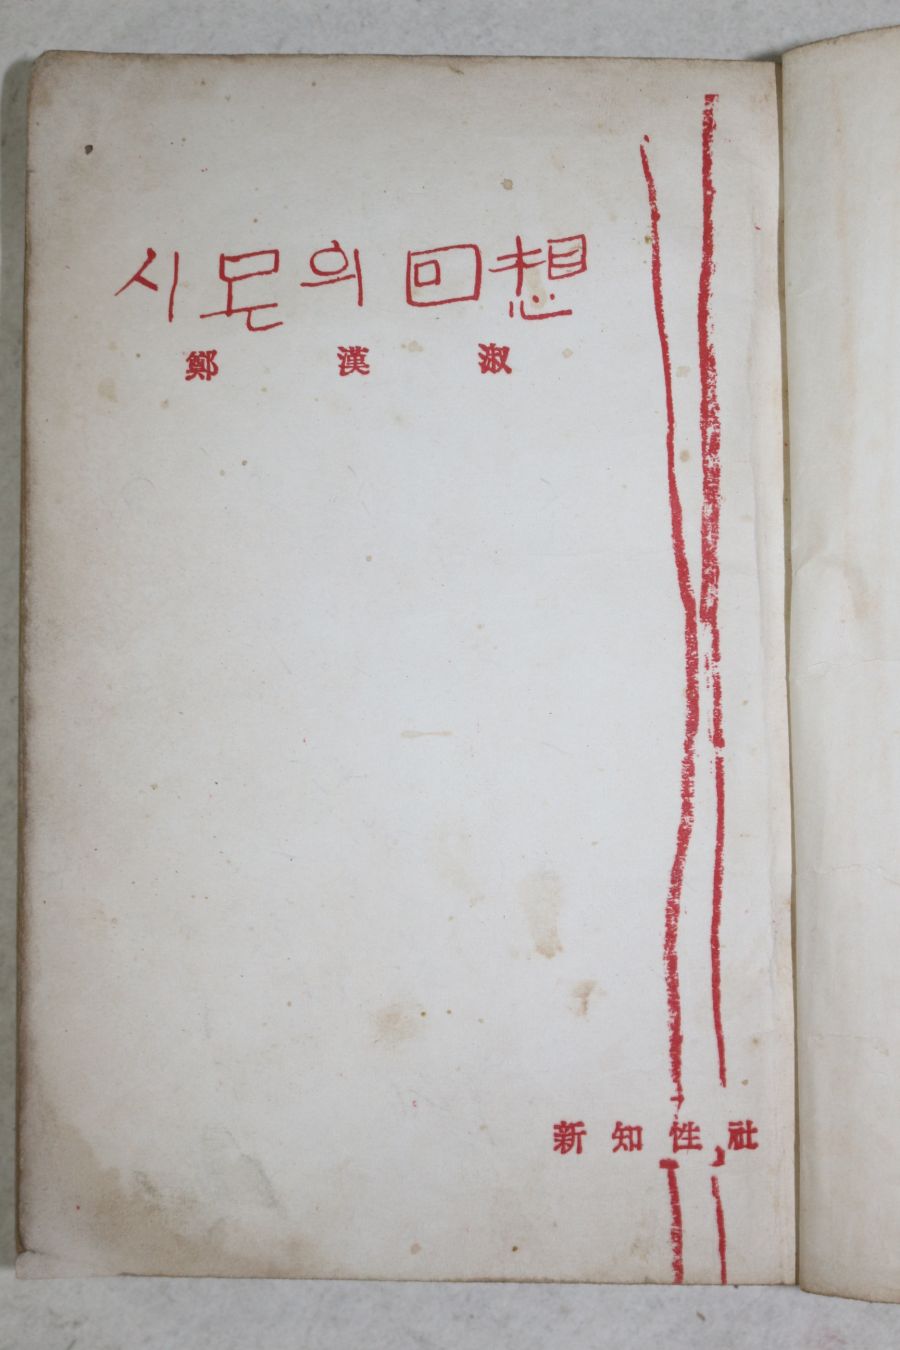 시몬의 回想
鄭漢淑
新知性社